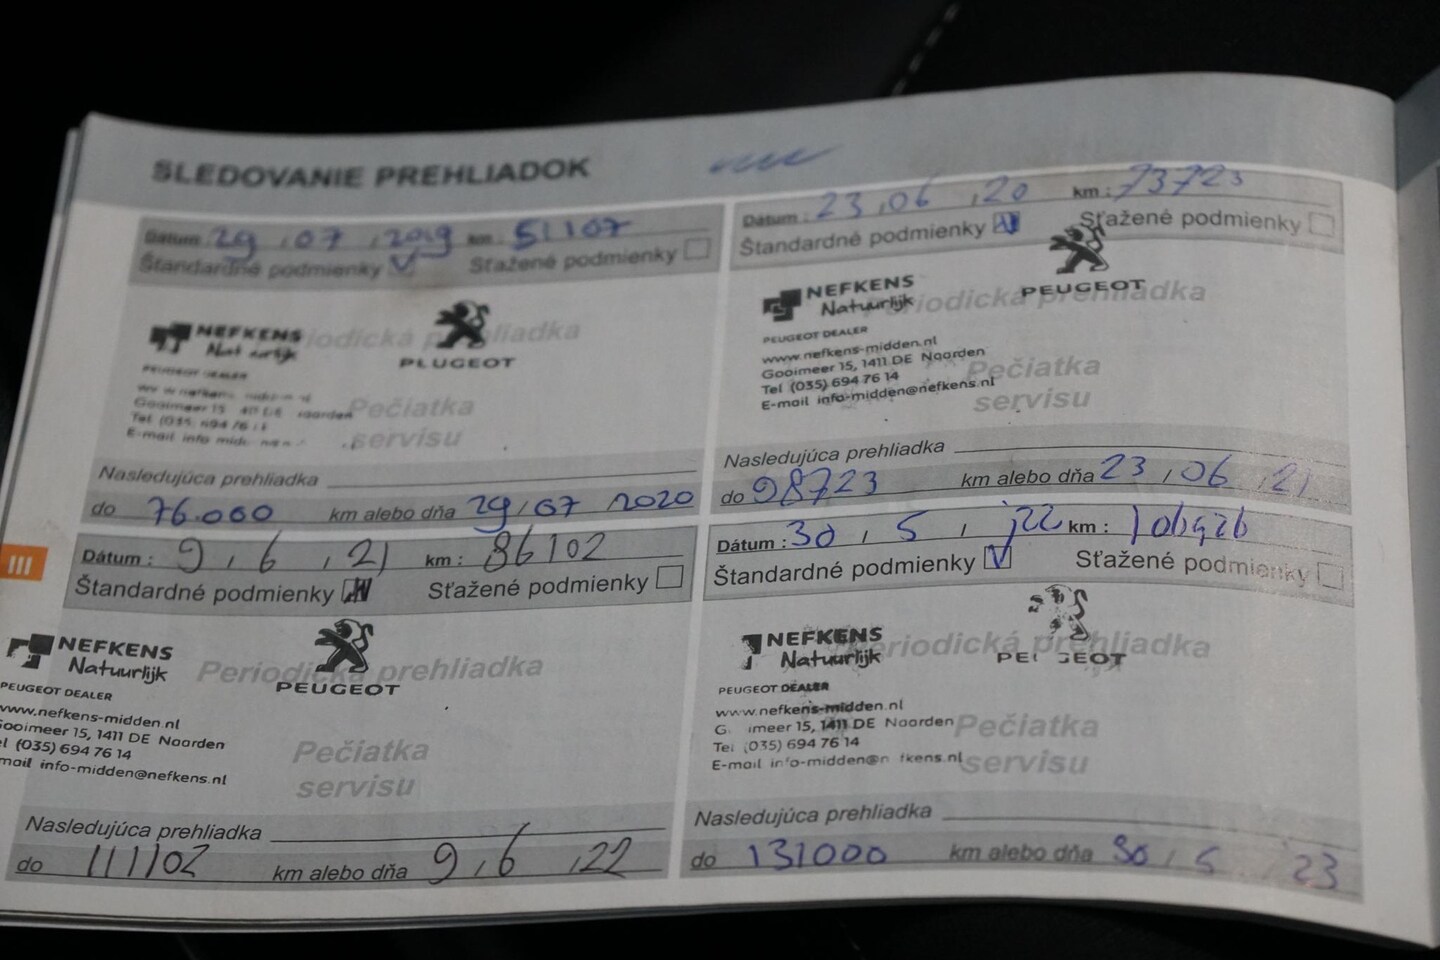 SLEDOVANIE PREHLIADOK
Dátum : 29 , 07 , 2019 km : 51107
Štandardné podmienky Sťažené podmienky
NEFKENS
Natuurlijk
Periodická prehliadka
PEUGEOT
PEUGEOT DEALER
Gooimeer 15
Naarden
Pečiatka
servisu
Nasledujúca prehliadka
do 76.000 km alebo dňa 29 / 07 / 2020
Dátum : 23 , 06 , 20 km : 73723
Štandardné podmienky Sťažené podmienky
NEFKENS
Natuurlijk
Periodická prehliadka
PEUGEOT
PEUGEOT DEALER
www.nefkens-midden.nl
Gooimeer 15, 1411 DE Naarden
Tel (035) 694 76 14
E-mail info-midden@nefkens.nl
Pečiatka
servisu
Nasledujúca prehliadka
do 98723 km alebo dňa 23 , 06 , 21
III
Dátum : 9 , 6 , 21 km : 86102
Štandardné podmienky Sťažené podmienky
NEFKENS
Natuurlijk
Periodická prehliadka
PEUGEOT
PEUGEOT DEALER
www.nefkens-midden.nl
Gooimeer 15, 1411 DE Naarden
(035) 694 76 14
info-midden@nefkens.nl
Pečiatka
servisu
Nasledujúca prehliadka
do 111102 km alebo dňa 9 , 6 , 22
Dátum : 30 , 5 , '22 km : 106926
Štandardné podmienky Sťažené podmienky
NEFKENS
Natuurlijk
Periodická prehliadka
PEUGEOT
PEUGEOT DEALER
www.nefkens-midden.nl
15, 1411 DE Naarden
(035) 694 76 14
E-mail
Pečiatka
servisu
Nasledujúca prehliadka
do 131000 km alebo dňa 30 , 5 23